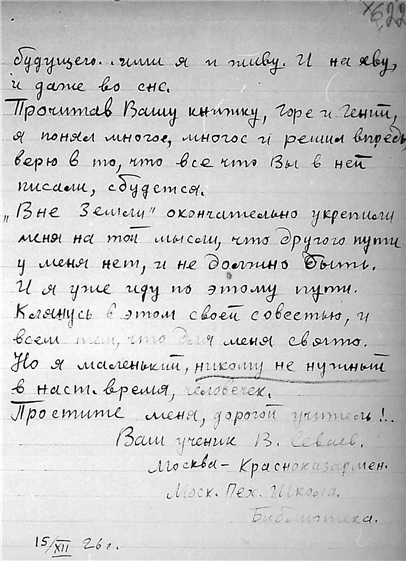 622
будущего.. ими я и живу. И на яву,
и даже во сне.
Прочитав Вашу книжку, Горе и Гений,
я понял многое, многое и решил впредь,
верю в то, что все что Вы в ней
писали, сбудется.
„Вне Земли" окончательно укрепили
меня на той мысли, что другого пути
у меня нет, и не должно быть.
И я уже иду по этому пути.
Клянусь в этом своей совестью, и
всем тем, что для меня свято.
Но я маленький, никому не нужный
в наст. время, человечек.
Простите меня, дорогой учитель!..
Ваш ученик В.
Москва – Красноказармен.
Моск. Пех. Школа.
Библиотека.
15/XII 26 г.